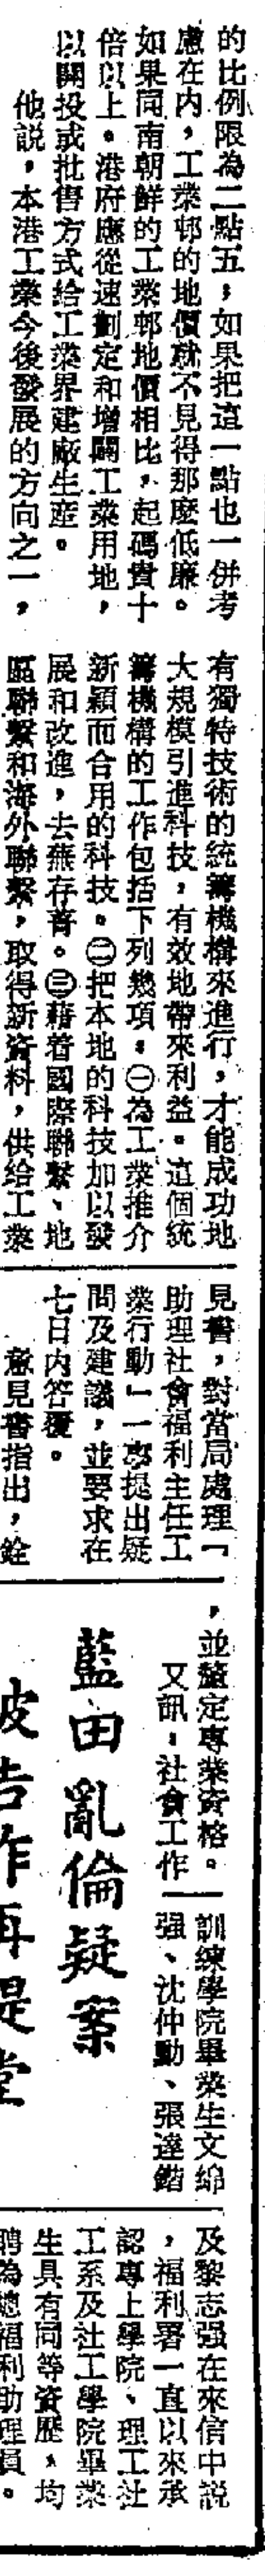 的比例限為二點五，如果把這一點也一併考
慮在內，工業邨的地價就不見得那麼低廉。
如果同南朝鮮的工業邨地價相比，起碼貴十
倍以上。港府應從速劃定和增闢工業用地，
以開投或批售方式給工業界建廠生產。
他說，本港工業今後發展的方向之一，
有獨特技術的統籌機構來進行，才能成功地
大規模引進科技，有效地帶來利益。這個統
籌機構的工作包括下列幾項：㊀為工業推介
新穎而合用的科技。㊁把本地的科技加以發
展和改進，去蕪存菁。㊂藉着國際聯繫、地
區聯繫和海外聯繫，取得新資料，供給工業
見書，對當局處理「
助理社會福利主任工
業行動」一事提出疑
問及建議，並要求在
七日內答覆。
意見書指出，銓
，並釐定專業資格。
又訊：社會工作
訓練學院畢業生文綿
强、沈仲動、張達鍇
及黎志强在來信中說
，福利署一直以來承
認專上學院、理工社
工系及社工學院畢業
生具有同等資歷，均
聘為總福利助理員。
藍田亂倫疑案
被告昨再提堂